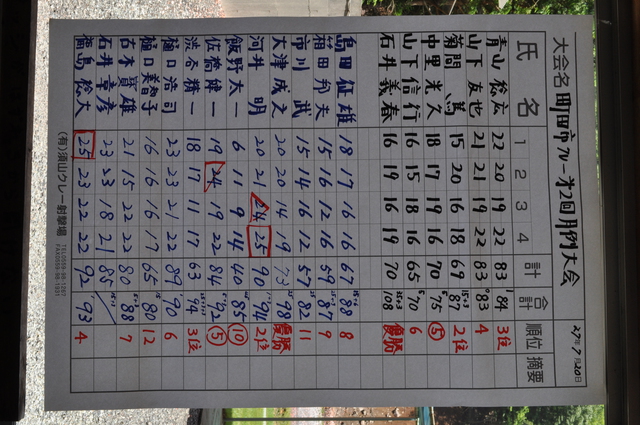 大会名 町田市クレー第2回月例大会
27年7月20日
氏名 1 2 3 4 計 合計 順位 摘要
青山 裕広 22 20 19 22 83 84 3位
山下 友也 21 21 19 22 83 83 4
菊間 篤 15 20 16 18 69 87 2位
中里 光久 18 16 19 16 70 75 5
山下 信行 17 15 18 16 65 70 6
石井 義春 16 19 16 19 70 108 優勝
島田 征雄 18 17 16 16 67 88 8
箱田 邦夫 15 16 12 16 59 87 9
市川 武 15 14 16 12 57 82 11
大津 成之 20 20 14 19 73 98 優勝
河井 明 20 21 24 25 90 94 2位
飯野 太一 6 11 9 14 40 85 10
佐筒 健一 19 24 19 22 84 92 5
渋谷 精一 18 17 11 17 63 94 3位
樋口 浩司 23 23 21 22 89 90 6
樋口 美智子 16 16 16 17 65 80 12
吉本 賢雄 21 15 22 22 80 88 7
石井 幸彦 23 23 18 21 85
福島 悠大 25 23 22 22 92 93 4
(有)須山クレー射撃場